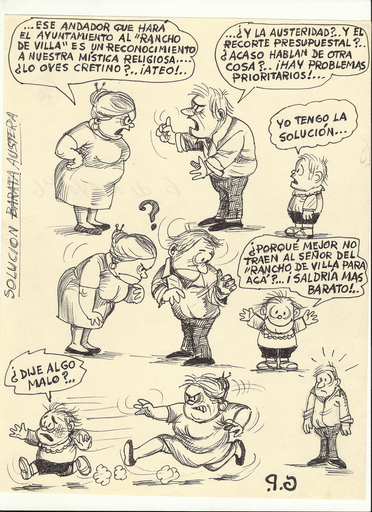 ...ESE ANDADOR QUE HARÁ
EL AYUNTAMIENTO AL "RANCHO
DE VILLA" ES UN RECONOCIMIENTO
A NUESTRA MÍSTICA RELIGIOSA....
¿LO OYES CRETINO?..¡ATEO!...
...¿Y LA AUSTERIDAD?..Y EL
RECORTE PRESUPUESTAL?..
¿ACASO HABLAN DE OTRA
COSA?..¡HAY PROBLEMAS
PRIORITARIOS!...
YO TENGO LA
SOLUCIÓN...
SOLUCION BARATA AUSTERA
?
¿PORQUÉ MEJOR NO
TRAEN AL SEÑOR DEL
"RANCHO DE VILLA PARA
ACÁ"?...¡SALDRÍA MAS
BARATO!..
¿DIJE ALGO
MALO?..
G.P.